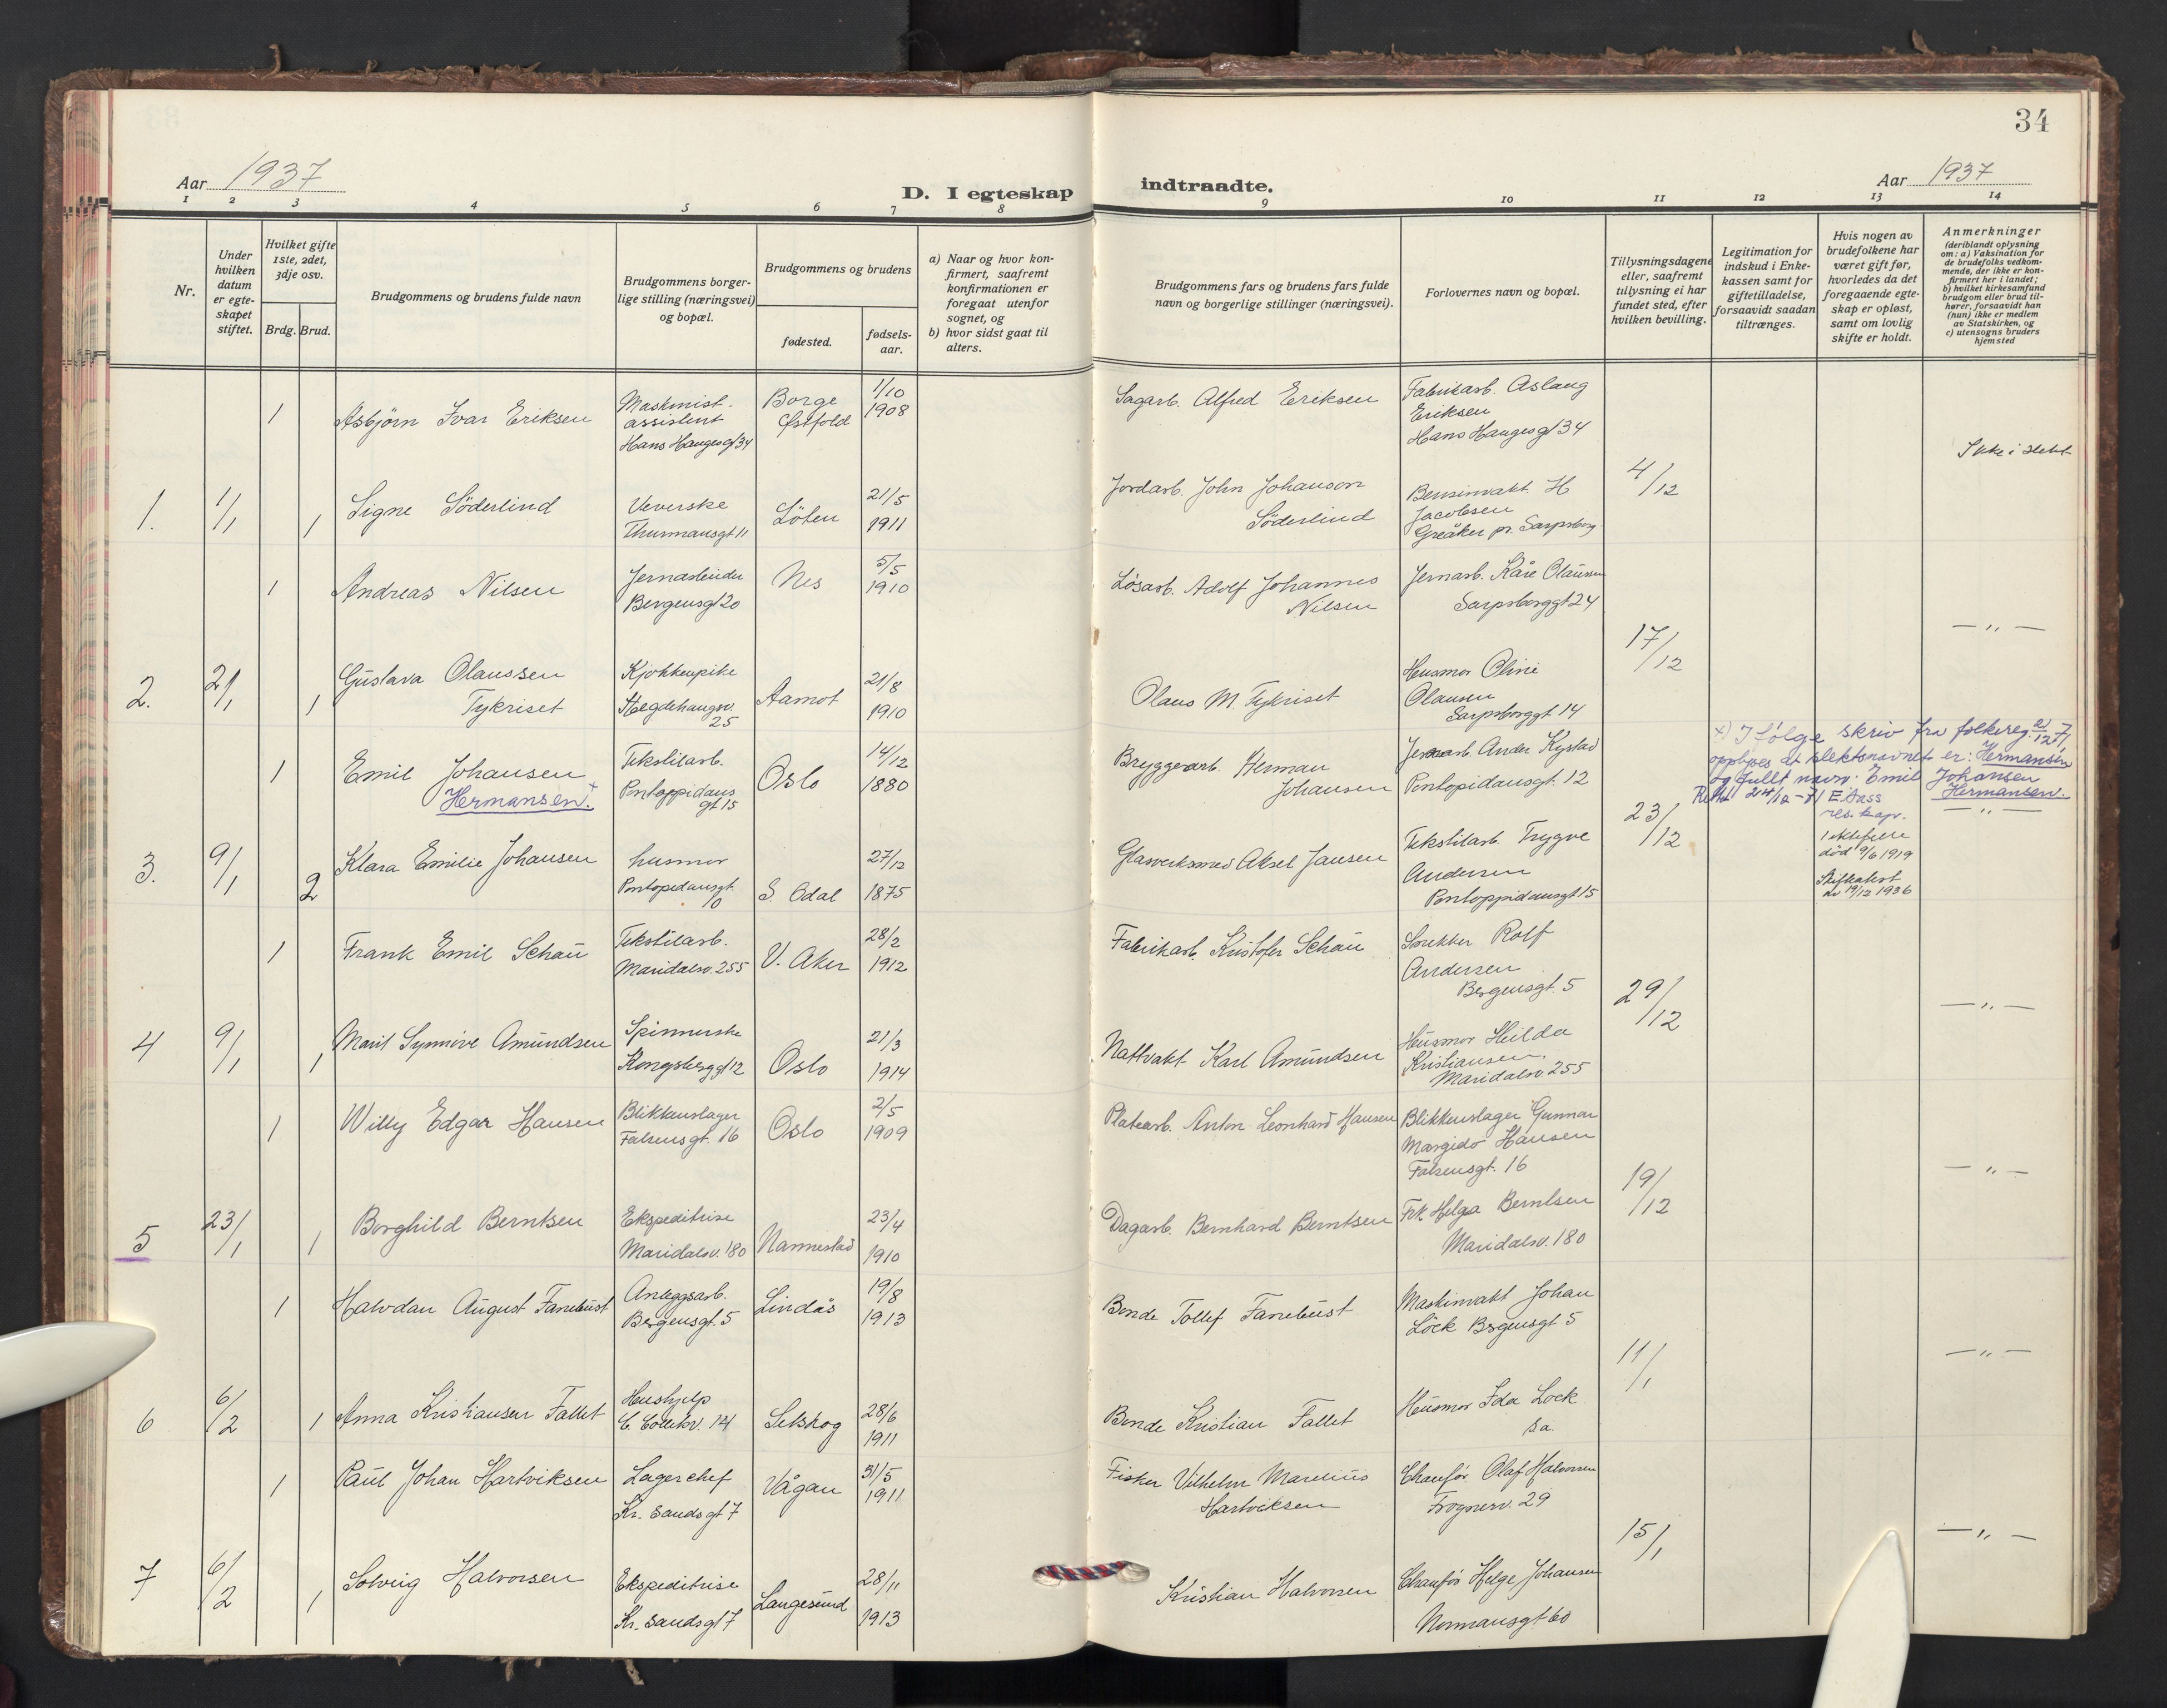 34
Aar 1937
D. I egteskap indtraadte.
Aar 1937
1 2 3 4 5 6 7 8 9 10 11 12 13 14
Nr.
Under
hvilken
datum
er egte-
skapet
stiftet.
Hvilket gifte
1ste, 2det,
3dje osv.
Brdg. Brud.
Brudgommens og brudens fulde navn
Brudgommens borger-
lige stilling (næringsvei)
og bopæl.
Brudgommens og brudens
fødested.
fødsels-
aar.
a) Naar og hvor kon-
firmert, saafremt
konfirmationen er
foregaat utenfor
sognet, og
b) hvor sidst gaat til
alters.
Brudgommens fars og brudens fars fulde
navn og borgerlige stillinger (næringsvei).
Forlovernes navn og bopæl.
Tillysningsdagene
eller, saafremt
tillysning ei har
fundet sted, efter
hvilken bevilling.
Legitimation for
indskud i Enke-
kassen samt for
giftetilladelse,
forsaavidt saadan
tiltrænges.
Hvis nogen av
brudefolkene har
været gift før,
hvorledes da det
foregaaende egte-
skap er opløst,
samt om lovlig
skifte er holdt.
Anmerkninger
(deriblandt oplysning
om: a) Vaksination for
de brudefolks vedkom-
mende, der ikke er kon-
firmert her i landet;
b) hvilket kirkesamfund
brudgom eller brud til-
hører, forsaavidt han
(hun) ikke er medlem
av Statskirken, og
c) utensogns bruders
hjemsted
1
Asbjörn Ivar Eriksen
Maskinist-
assistent
Hans Haugesgt 34
Borge
Østfold
1/10
1908
Sagarb. Alfred Eriksen
Fabrikarb. Aslaug
Eriksen
Hans Haugesgt 34
Ikke i slekt
1. 1/1 1
Signe Söderlind
Veverske
Thurmansgt 11
Löten
21/5
1911
Jordarb. John Johanson
Söderlind
Bensinvakt. H
Jacobsen
Greåker pr. Sarpsborg
4/12
1
Andreas Nilsen
Jernarbeider
Bergensgt 20
Nes
5/5
1910
Lösarb. Adolf Johannes
Nilsen
Jernarb. Kåre Olaussen
Sarpsborggt 24
17/12
— " —
2. 2/1 1
Gustava Olaussen
Tykriset
Kjøkkenpike
Hegdehaugsv.
25
Aamot
21/8
1910
Olaus M. Tykriset
Husmor Oline
Olausen
Sarpsborggt 14
1
Emil Johansen
Hermansen. +
Tekstilarb.
Pontoppidans
gt 15
Oslo
14/12
1880
Bryggearb. Herman
Johansen
Jernarb. Ander Kystad
Pontopidansgt. 12
+) Ifølge skriv fra folkereg.
opplyses at slektsnavnet er: Hermansen
og fullt navn: Emil Johansen
Hermansen.
res. kap.
— " —
3. 9/1 2
Klara Emilie Johansen
husmor
Pontopidansgt.
10
S. Odal
27/12
1875
Glasverksmed Aksel Jansen
Tekstilarb. Trygve
Andersen
Pontoppidansgt 15
23/12
1 ektefelle
død 9/6 1919
Skifteatest
av 19/12 1936
1
Frank Emil Schau
Tekstilarb.
Maridalsv. 255
V. Aker
28/2
1912
Fabrikarb. Kristofer Schau
Snekker Rolf
Andersen
Bergensgt. 5
29/12
— " —
4 9/1 1
Marit Synnöve Amundsen
Spinnerske
Kongsberggt 12
Oslo
21/3
1914
Nattvakt Karl Amundsen
Husmor Hilda
Kristiansen.
Maridalsv. 255
1
Willy Edgar Hansen
Blikkenslager
Falsensgt. 16
Oslo
2/5
1909
Platearb. Anton Leonhard Hansen
Blikkenslager Gunnar
Margido Hansen
Falsensgt. 16
19/12
— " —
5 23/1 1
Borghild Berntsen
Ekspeditrise
Maridalsv. 180
Nannestad
23/4
1910
Dagarb. Bernhard Berntsen
Frk. Helga Berntsen
Maridalsv. 180
1
Halvdan August Fanebust
Anleggsarb.
Bergensgt. 5
Lindås
19/8
1913
Bonde Tollef Fanebust
Maskinvakt Johan
Löck Bergensgt 5
11/1
— " —
6 6/2 1
Anna Kristiansen Fallet
Hushjelp
14
Setskog
28/6
1911
Bonde Kristian Fallet
Husmor Ida Lock
s.a.
1
Paul Johan Hartviksen
Lagerchef
Kr. Sandsgt 7
Vågan
31/5
1911
Fisker Vilhelm Marelius
Hartviksen
Chauför Olaf Halvorsen
Frognerv. 29
15/1
— " —
7 6/2 1
Solveig Halvorsen
Ekspeditrise
Kr. Sandsgt 7
Langesund
28/11
1913
Kristian Halvorsen
Chauför Helge Johansen
Normansgt 60